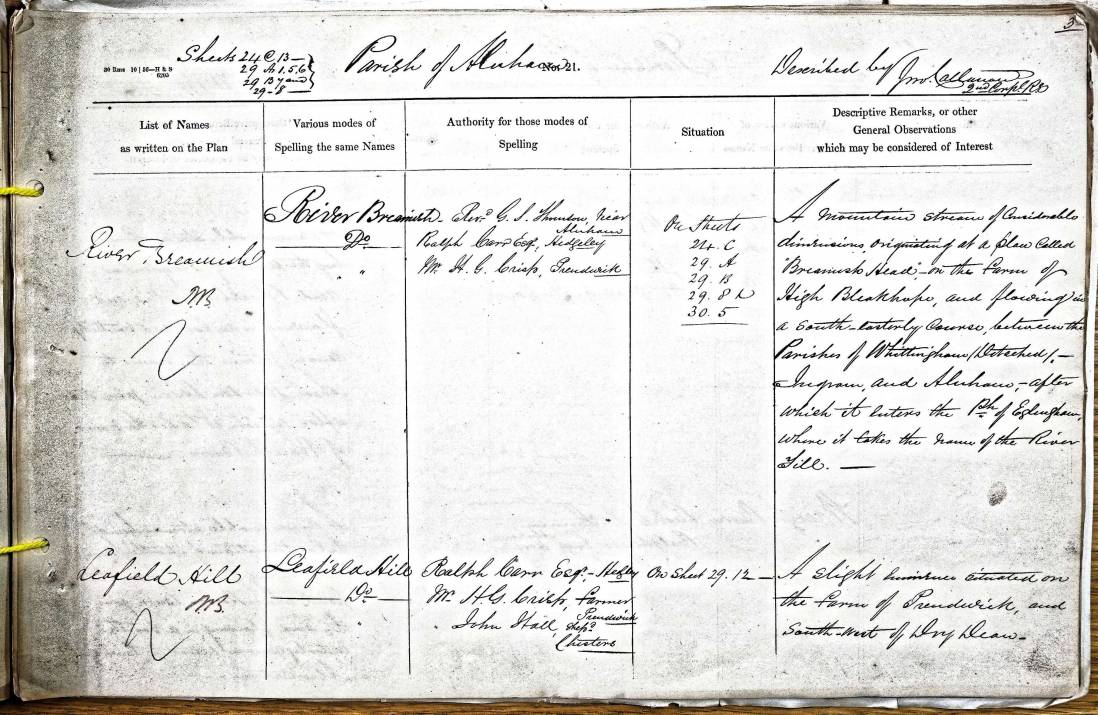 3
Sheets 24 C 13 —
29 A 1. 5. 6
29 B 7 and
29 - 8 —
30 Rms 10 | 56—H & S
6205
Parish of Alnham
No. 21.
Described by Jno Callanan
2nd Corpl RE
List of Names
as written on the Plan
Various modes of
Spelling the same Names
Authority for those modes of
Spelling
Situation
Descriptive Remarks, or other
General Observations
which may be considered of Interest
River Breamish
River Breamish
Do
"
Revd G. S. Thomson, Vicar
Alnham
Ralph Carr Esqr, Hedgeley
Mr. H. G. Crisp, Prendwick
On Sheets
24. C
29. A
29. B
29. 8 &
30. 5
A mountain stream of Considerable
dimensions originating at a place Called
"Breamish Head" - on the Farm of
High Bleakhope, and flowing in
a South-easterly Course, between the
Parishes of Whittingham (Detached), —
Ingram, and Alnham, - after
which it enters the Ph of Eglingham,
where it takes the name of the River
Till. —
Leafield Hill
Leafield Hill
Do
"
Ralph Carr Esqr. - Hedgley
Mr. H. G. Crisp, Farmer
Prendwick
" John Hall, Shepd
Chesters
On Sheet 29. 12 —
A slight eminence situated on
the Farm of Prendwick, and
South-West of Dry Dean -